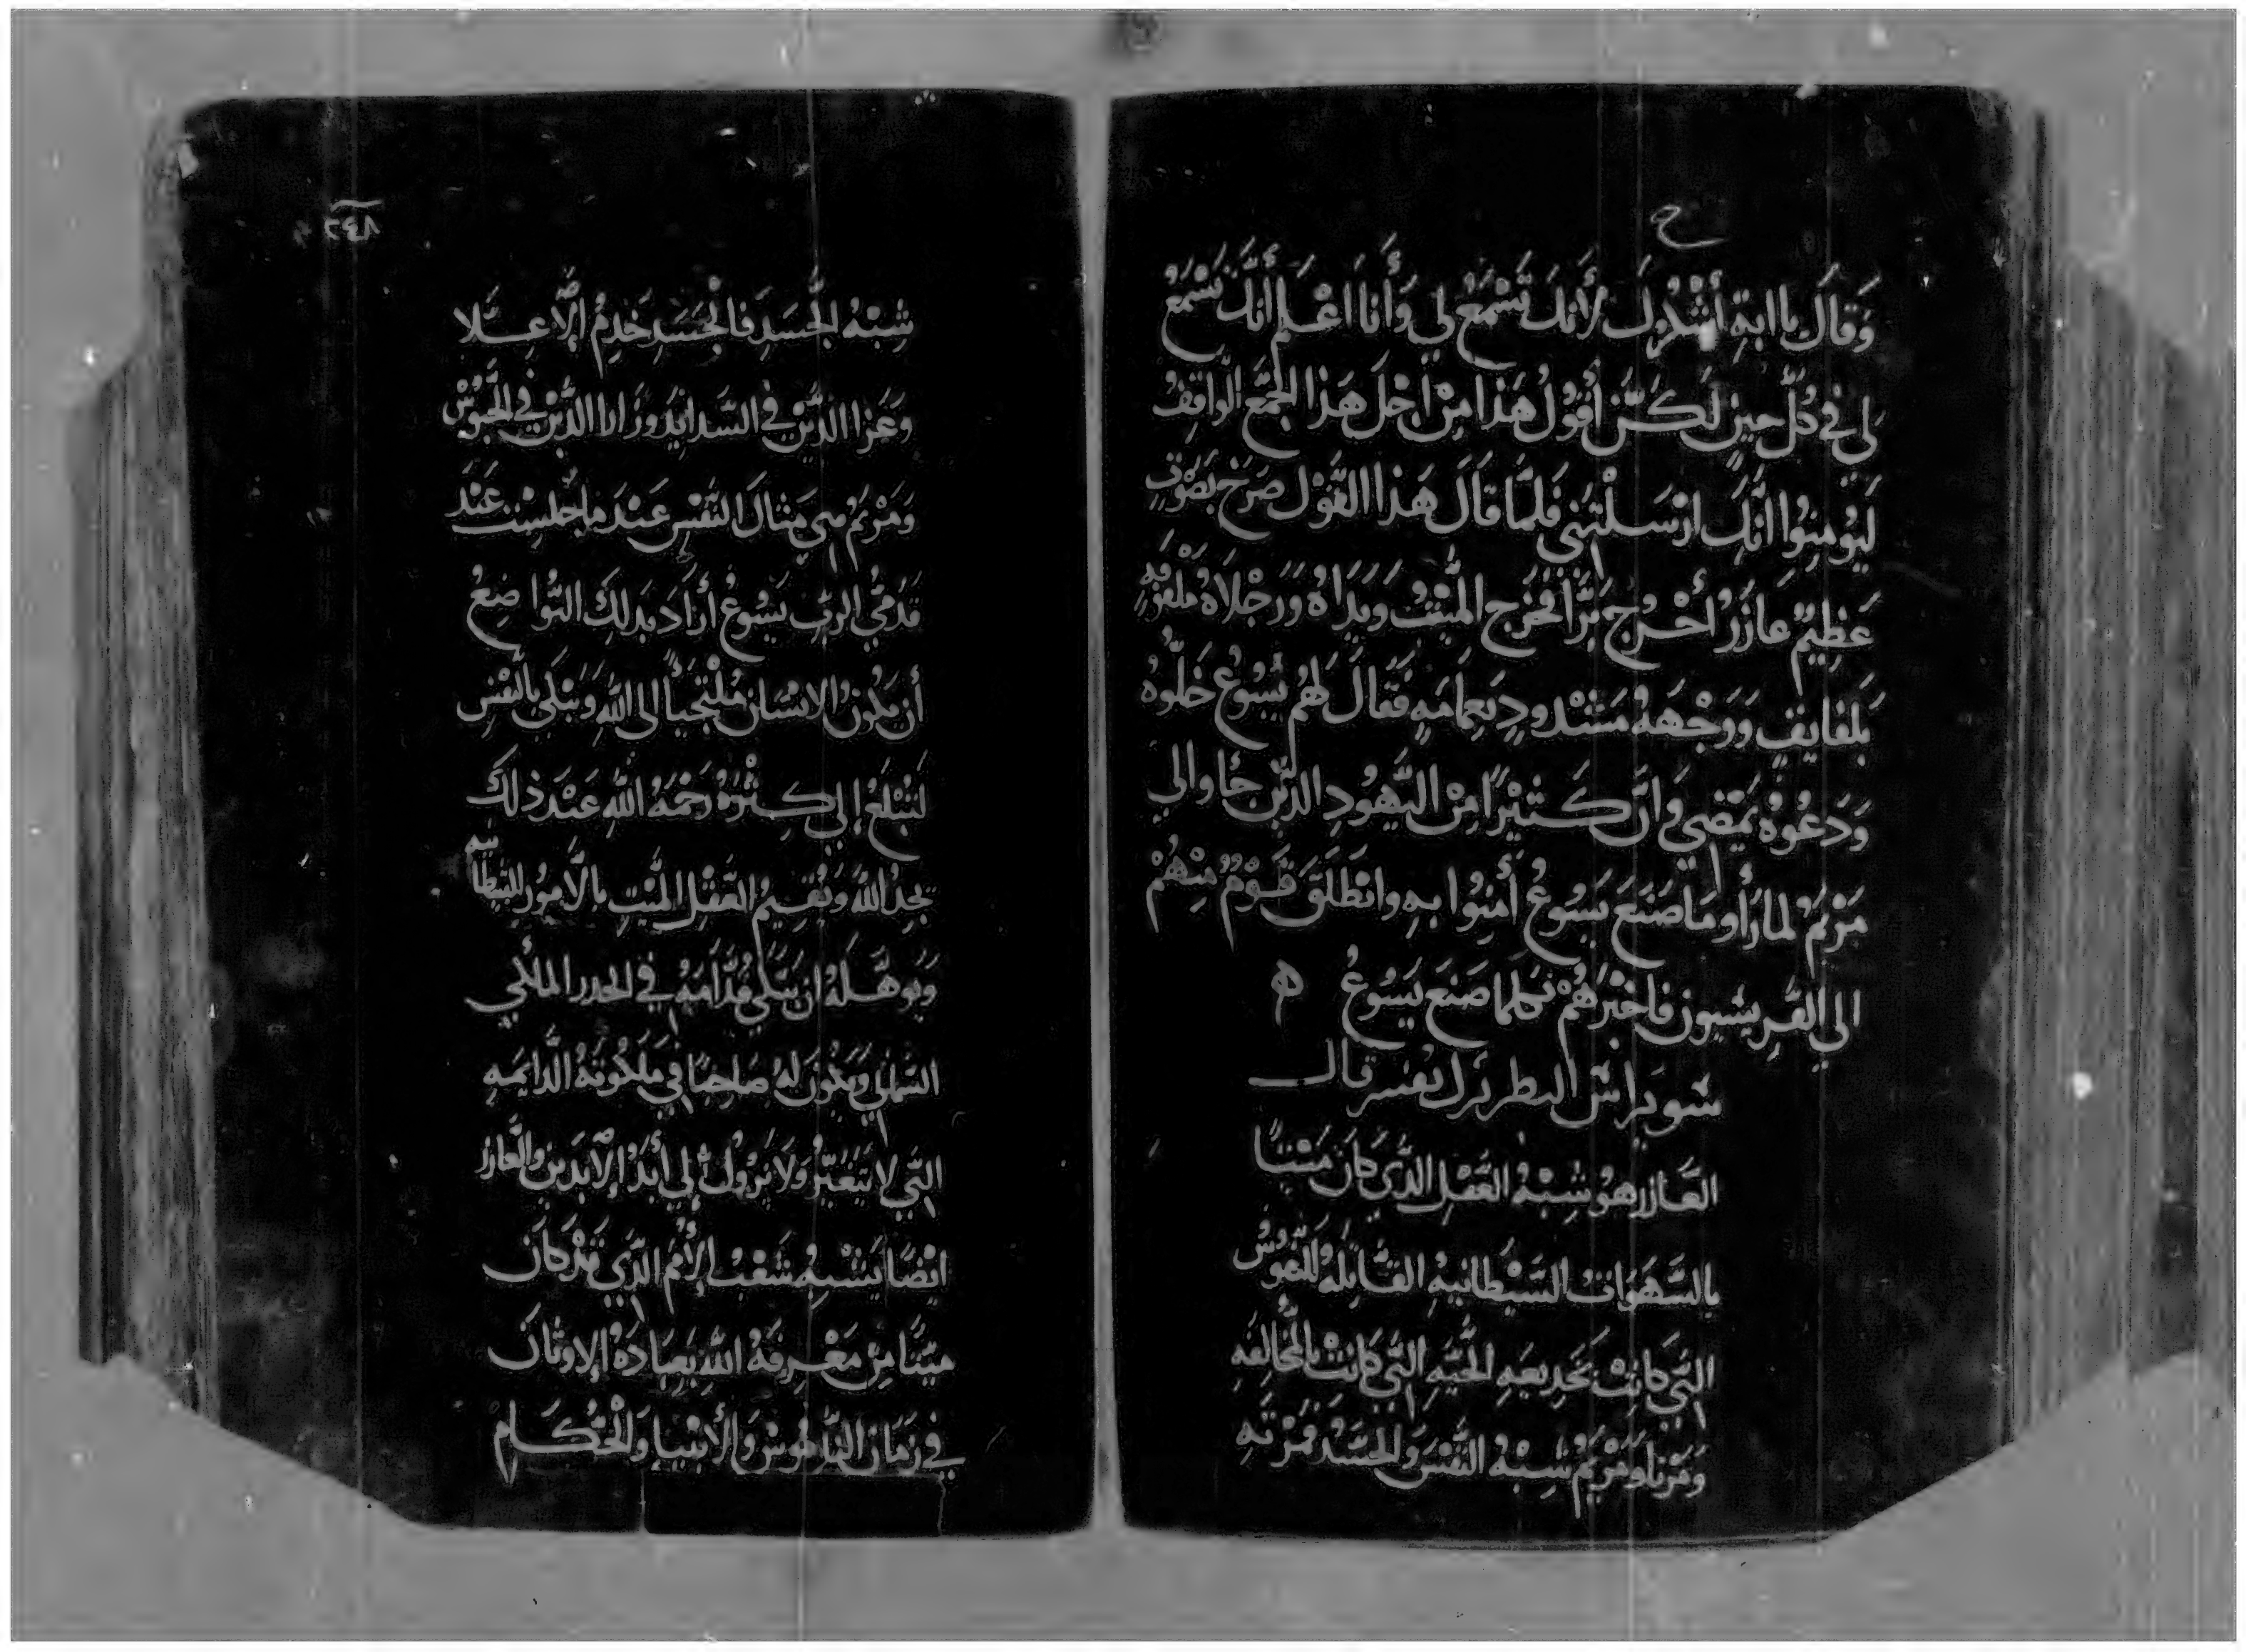 ح
وَقَالَ ياابةِ أَشْكُرُكَ لأَنكَ تَسْمَعُ لي وَأَنا اعْلم أَنَّكَ تَسْمَعُ
لي في كُلِّ حينٍ لَكنَّ أقُولُ هَذا مِنْ اجْلَ هَذا الجمَّع الوَاقِفُ
ليُومنِوُا انَّكَ ارْسَلْتَني فَلمَّا قَالَ هَذا القَوْل صَرَخ بَصَوْتٍ
عَظِيمٌ عَازَرُ أخْرُج بَرَّا فَخَرَج المِّيْتُ وَيَدَاهُ وَرَجْلَاهُ ملفَوُفهٍ
بَلفَايفٍ وَوَجْههُ مَشْدودٍ بَعِمامَهٍ فَقالَ لهُم يَسُوعُ خَلُّوهُ
وَدَعُوهُ يَمَضي وَانَّ كَثيْرًا مِنْ اليَّهُودِ الذَّين جَاوا الي
مَرْيَمُ لما رَأَوا مَا صَنَعَ يَسُوعُ أمَنِوُا بهِ وانْطَلَقَ قَوْمٌ مِنْهُمْ
الي الفَّرِيسيون فَاخبْرَهُمْ بكلما صَنَع يَسُوعُ ه
سَويرَاسْ البطريَرك يفسر قال
العَّازر هوُ شِبْهُ العَقلِ الذَّي كَانَ مَيْتاً
بالشَّهَوَات الشَّيْطَانيهِ القَّاتِلهُ للنّفوُسُ
التَّي كَانتْ بَخَدِيعَهِ الحَّيَهِ التَّي كَانتْ بالمُّخالِفَهِ
وَمَرْتا وَمَرْيَمُ شِبْهُ النَّفْسَ وَالجَسَّدُ فمَرْتَهِ
٢٤٨
شِبْهُ الجَّسَدِ فَالجْسَدِ خَدِمُ الأعِلَّا
وَعَزا الذَّيْن في الشَّدايدَ وزَارا الذَّيْنَ في الحبُوسْ
وَمَرْيَمُ هي مِثالَ النَّفْس عنْدَ ما جلَسِت عَنْد
قَدَميُّ الربِّ يَسُوعُ أرَادَ بَدلكَ التَّوُاضِعُ
أن يكُونُ الانسَان مُلتجياً الى اللهِ وَيَبْلي بالنفْسِ
لتَبْلُغ الي كِثْرَةُ رَحْمَهُ اللهِ عَنْدَ ذلكَ
يَجدُ اللهُ وَيُقيمُ العَقْل المَّيتِ بالأَمُورُ
وَيُوهِّلَهُ ان قُدّامَهُ في الخدر الملاكي
السَّمائي وَيَكُون لهُ صَاحِبًا في مَلكُوتَهُ الدَّايمَهِ
التَّي لا تتَغيَّرُ وَلا تَزولُ الي أبَدُ الآبَدينِ والَّعازر
ايْضًا يَشْبِهُ شَعْب الأُمَم الذَّي قَدْ كانَ
ميّتًا مِنْ مَعْرِفَهُ اللهِ بَعِبَادَهُ الاوثانَ
في زمَان النَّاموُسْ وَالأنْبيا وَالحكام